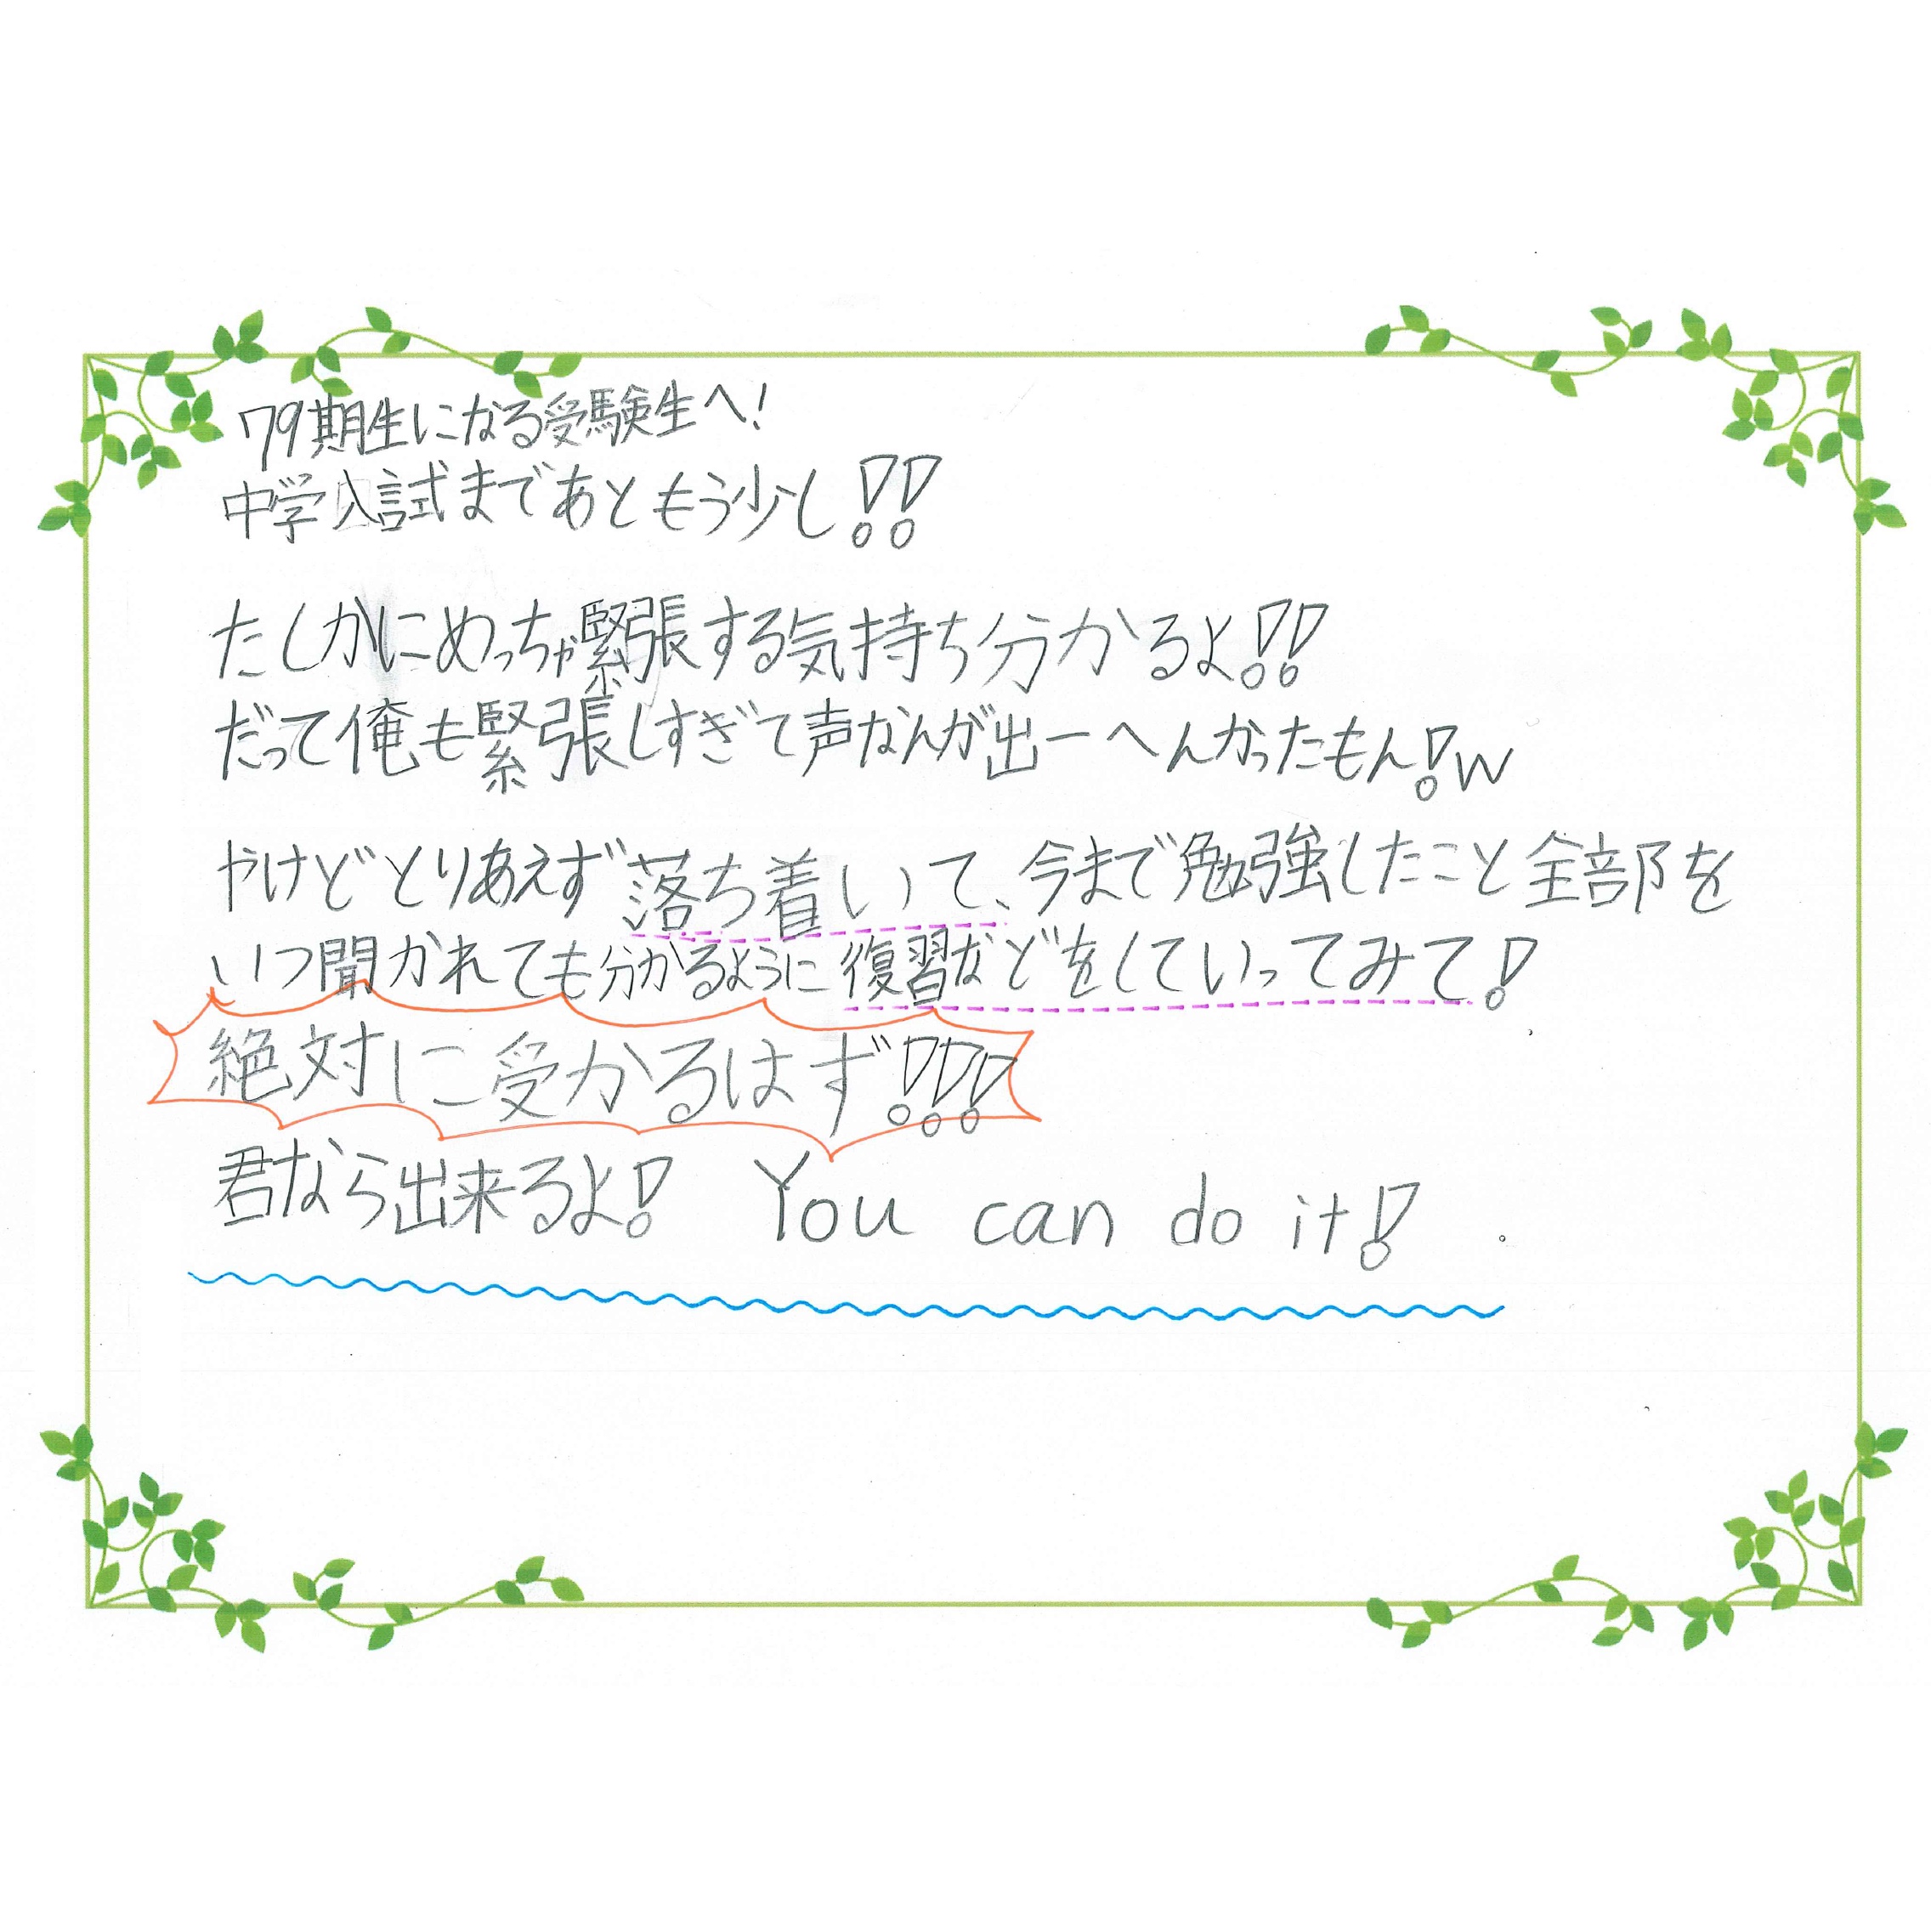 79期生になる受験生へ!
中学入試まであともう少し!!
たしかにめっちゃ緊張する気持ち分かるよ!!
だって俺も緊張しすぎて声なんが出ーへんかったもん!w
やけどとりあえず落ち着いて、今まで勉強したこと全部を
いつ聞かれても分かるように復習などをしていってみて!
絶対に受かるはず!!!
君なら出来るよ! You can do it!